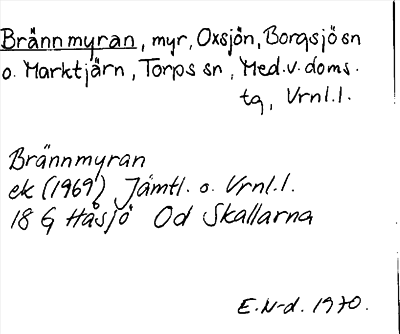 Brännmyran, myr, Oxsjön, Borgsjö sn
o. Marktjärn, Torps sn, Med.v. doms.
tg, Vrnl.l.
Brännmyran
ek (1969) Jämtl. o. Vrnl.l.
18 G Håsjö Od Skallarna
E.N-d. 1970.